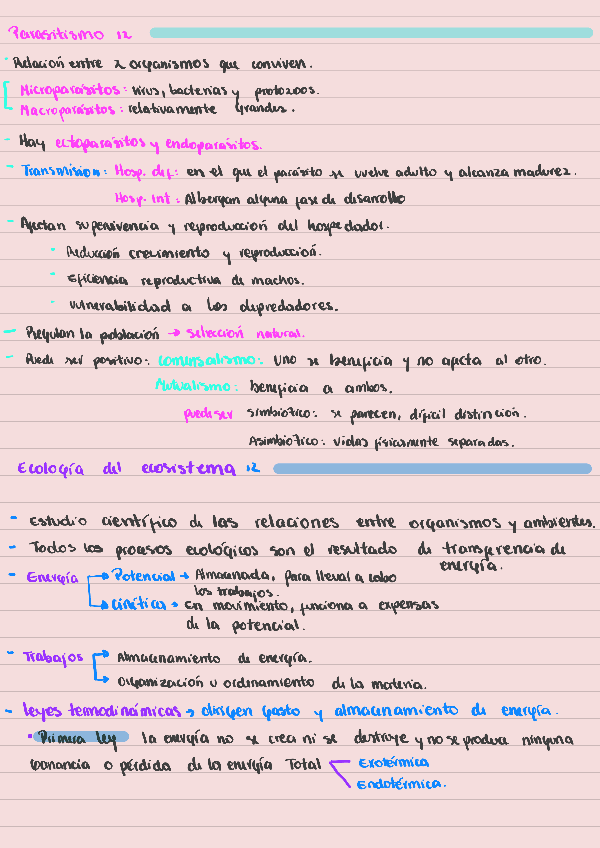 Parasitismo 12
Relación entre 2 organismos que conviven.
Microparásitos: virus, bacterias y protozoos.
Macroparásitos: relativamente grandes.
- Hay ectoparásitos y endoparásitos.
- Transmisión: Hosp. def: en el que el parásito se vuelve adulto y alcanza madurez.
Hosp. int: Albergan alguna fase de desarrollo
- Afectan supervivencia y reproducción del hospedador.
- Reducción crecimiento y reproducción.
- Eficiencia reproductiva de machos.
- vulnerabilidad a los depredadores.
- Regulan la población → selección natural.
- Puede ser positivo: comensalismo: uno se beneficia y no afecta al otro.
Mutualismo: beneficia a ambos.
puede ser simbiótico: se parecen, difícil distinción.
Asimbiótico: vidas físicamente separadas.
Ecología del ecosistema 12
- Estudio científico de las relaciones entre organismos y ambientes.
- Todos los procesos ecológicos son el resultado de transferencia de
energía.
- Energía → Potencial → Almacenada, para llevar a cabo
los trabajos.
→ Cinética → En movimiento, funciona a expensas
de la potencial.
- Trabajos → Almacenamiento de energía.
→ Organización u ordenamiento de la materia.
- Leyes termodinámicas → dirigen gasto y almacenamiento de energía.
• Primera ley la energía no se crea ni se destruye y no se produce ninguna
ganancia o pérdida de la energía Total Exotérmica
Endotérmica.